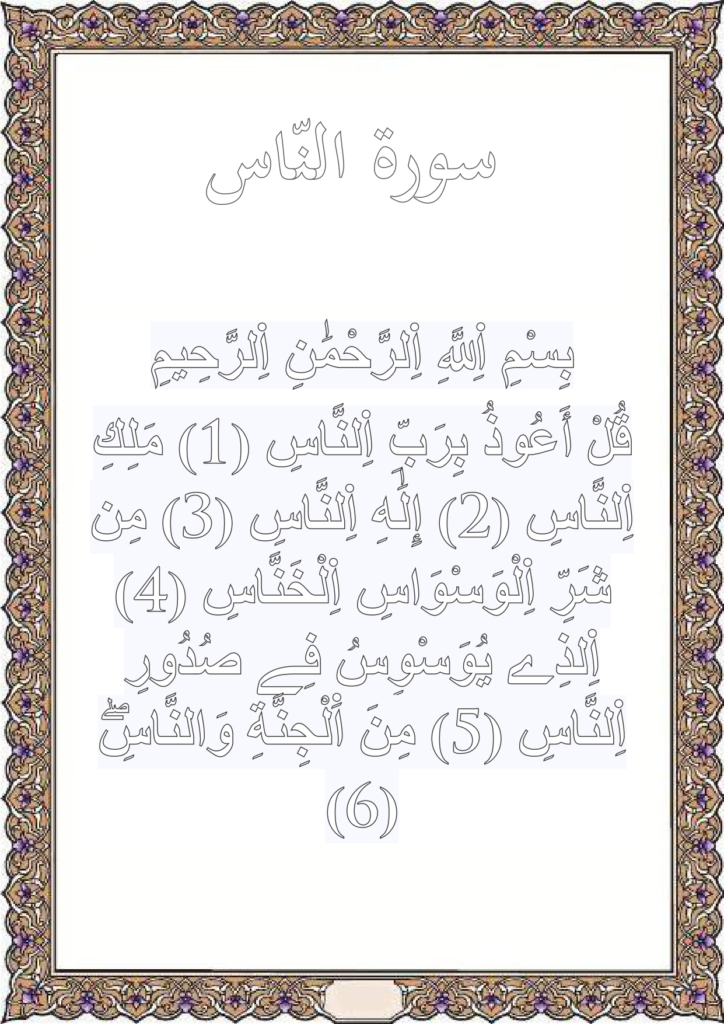 سورة النّاس
بِسْمِ اِ۬للَّهِ اِ۬لرَّحْمَٰنِ اِ۬لرَّحِيمِ
قُلْ أَعُوذُ بِرَبِّ اِ۬لنَّاسِ (1) مَلِكِ
اِ۬لنَّاسِ (2) إِلَٰهِ اِ۬لنَّاسِ (3) مِن
شَرِّ اِ۬لْوَسْوَاسِ اِ۬لْخَنَّاسِ (4)
اِ۬لذِے يُوَسْوِسُ فِے صُدُورِ
اِ۬لنَّاسِ (5) مِنَ اَ۬لْجِنَّةِ وَالنَّاسِۖ
(6)